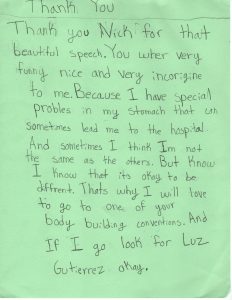 Thank You
Thank you Nick for that
beautiful speech. You wher very
funny nice and very incorigine
to me. Because I have special
probles in my stomach that can
sometimes lead me to the hospital
And sometimes I think Im not
the same as the others. But Know
I know that its okay to be
diffrent. Thats why I will love
to go to one of your
body building conventions. And
If I go look for Luz
Gutierrez okay.